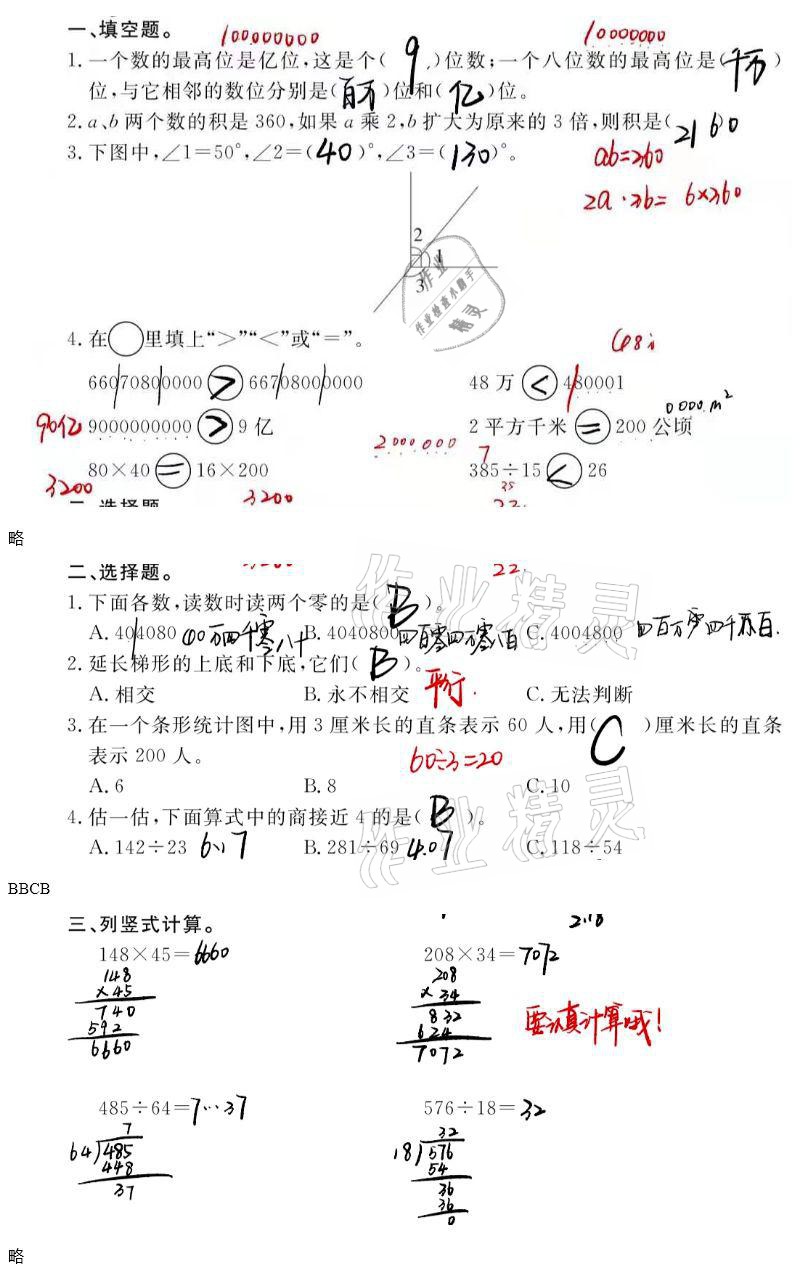 一、填空题。
100000000
10000000
1.一个数的最高位是亿位,这是个(9)位数;一个八位数的最高位是(千万)
位,与它相邻的数位分别是(百万)位和(亿)位。
2.a、b两个数的积是360,如果a乘2,b扩大为原来的3倍,则积是(2160
3.下图中,∠1=50°,∠2=(40)°,∠3=(130)°。
ab=360
2a·3b=6×360
2
1
3
作业
作业检查小助手
精灵
4.在○里填上“>”“<”或“=”。
66070800000>66708000000
48万<480001
90亿 9000000000>9亿
2平方千米=200公顷
0000.m²
2000.000
80×40=16×200
385÷15<26
3200
3200
二、选择题
略
二、选择题。
22.
作业精灵
1.下面各数,读数时读两个零的是(B)。
A.404080 40万四千零八十 B.4040800四百零四万零八百 C.4004800
2.延长梯形的上底和下底,它们(B)。
A.相交 B.永不相交 平行. C.无法判断
3.在一个条形统计图中,用3厘米长的直条表示60人,用(C)厘米长的直条
表示200人。
60÷3=20
A.6 B.8 C.10
4.估一估,下面算式中的商接近4的是(B)。
A.142÷23 6.17 B.281÷69 4.07 C.118÷54
作业精灵
BBCB
2.18
三、列竖式计算。
148×45=6660
208×34=7072
148
×45
740
592
6660
208
×34
832
624
7072
要认真计算哦!
485÷64=7…37
576÷18=32
7
64)485
448
37
32
18)576
54
36
36
0
略